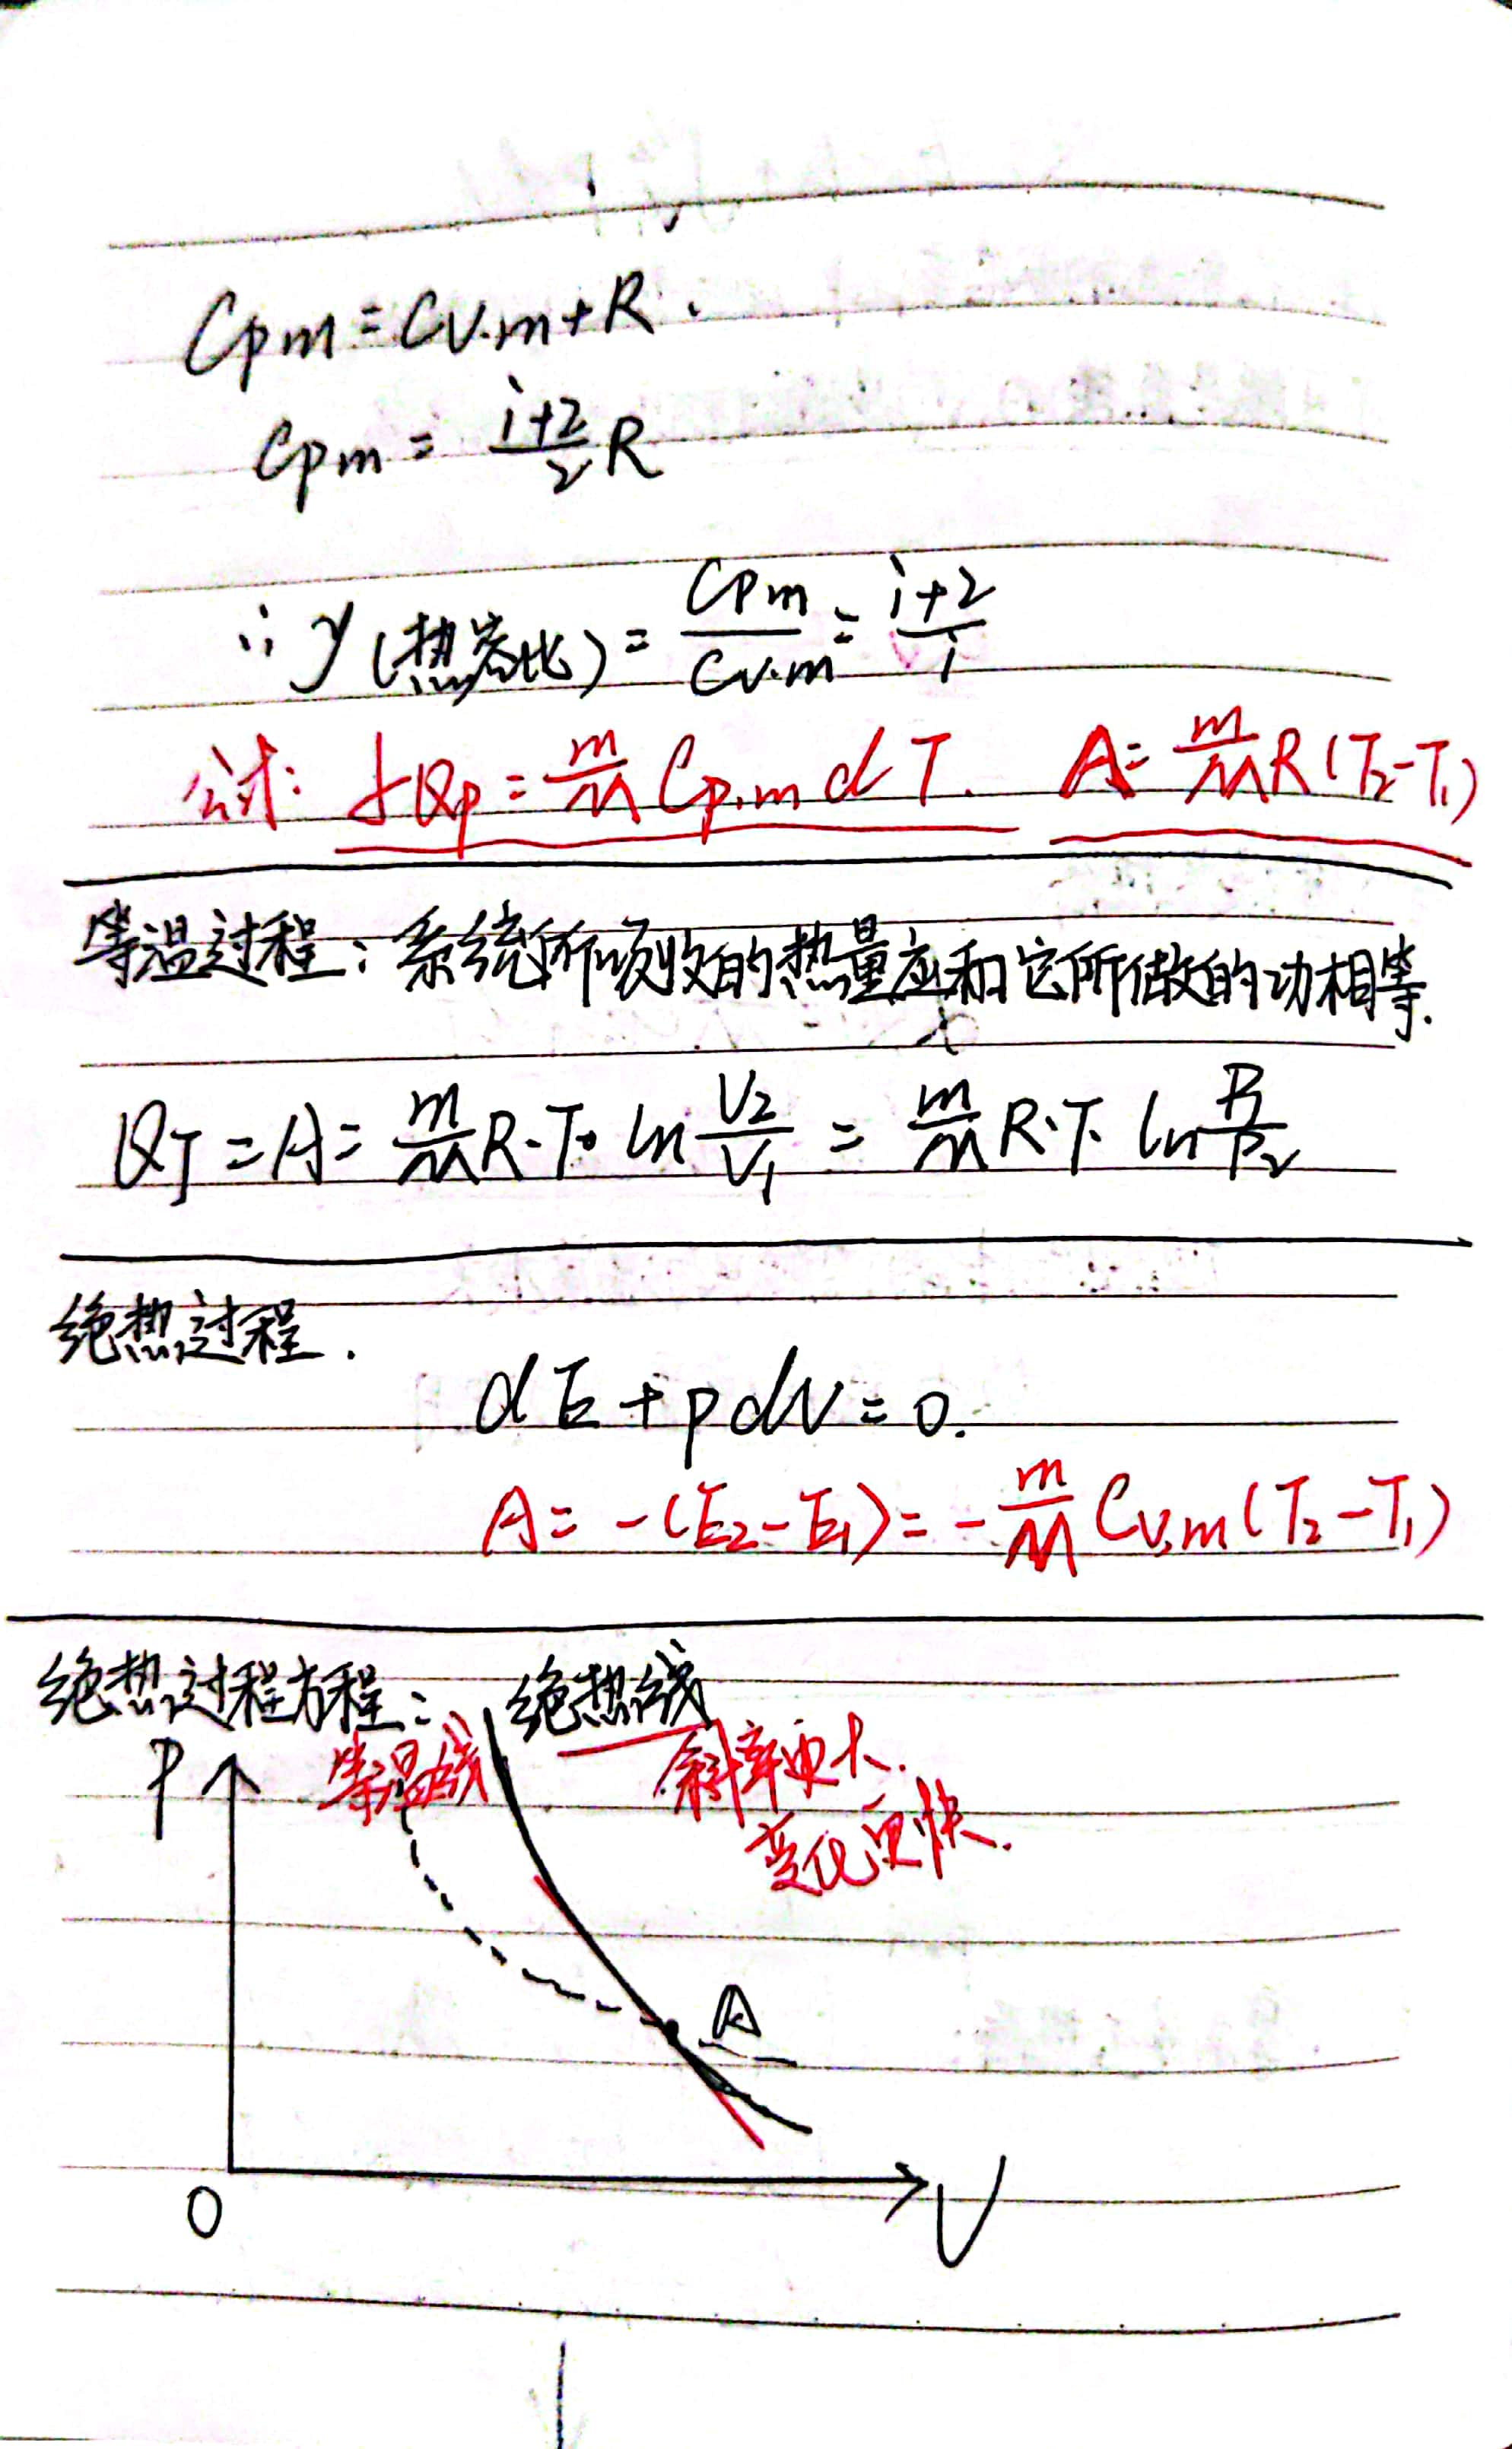 Cpm=Cv.m+R.
Cpm= i+2/2 R
∴ γ(热容比)= Cpm/Cv.m = i+2/i
公式: đQp = m/M Cp.m dT. A= m/M R(T2-T1)
等温过程:系统所吸收的热量应和它所做的功相等.
QT=A= m/M R·T· ln V2/V1 = m/M R·T· ln P1/P2
绝热过程.
dE+pdV=0.
A= -(E2-E1)= -m/M Cv,m(T2-T1)
绝热过程方程: 绝热线
P 等温线 斜率更大.
变化更快.
A
0 V